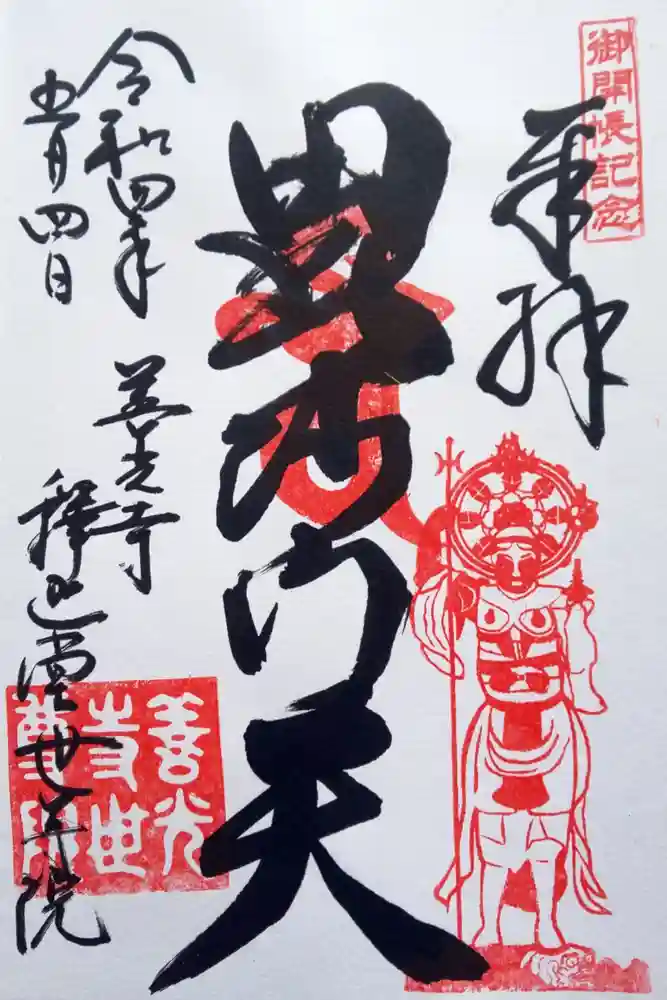 御開帳記念
奉拝
毘沙門天
令和四年
五月四日
善光寺
釋迦堂世尊院
善光
寺世
尊院